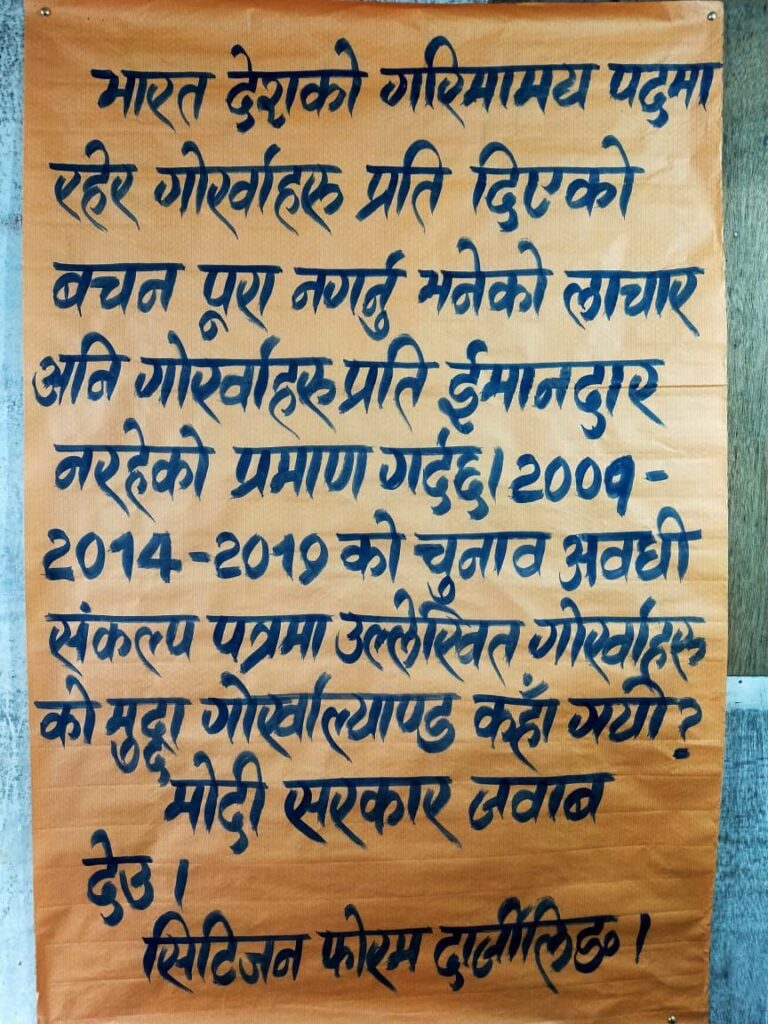 भारत देशको गरिमामय पदमा
रहेर गोर्खाहरू प्रति दिएको
बचन पूरा नगर्नु भनेको लाचार
अनि गोर्खाहरू प्रति ईमानदार
नरहेको प्रमाण गर्दछ। 2009-
2014-2019 को चुनाव अवधी
संकल्प पत्रमा उल्लेखित गोर्खाहरू
को मुद्दा गोर्खाल्याण्ड कहाँ गयो?
मोदी सरकार जवाब
देउ।
सिटिजन फोरम दार्जीलिङ।